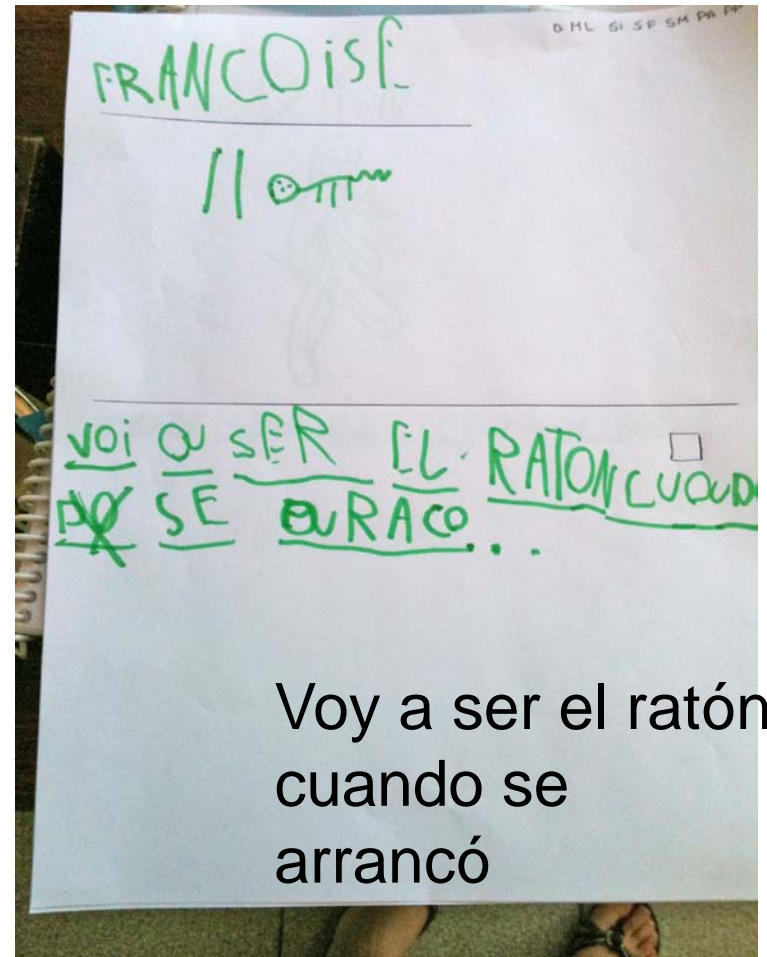 D ML SI SF SM PA PP
FRANCOISE
VOi a SER EL RATON CUaUD
DO SE aURACO...
Voy a ser el ratón
cuando se
arrancó